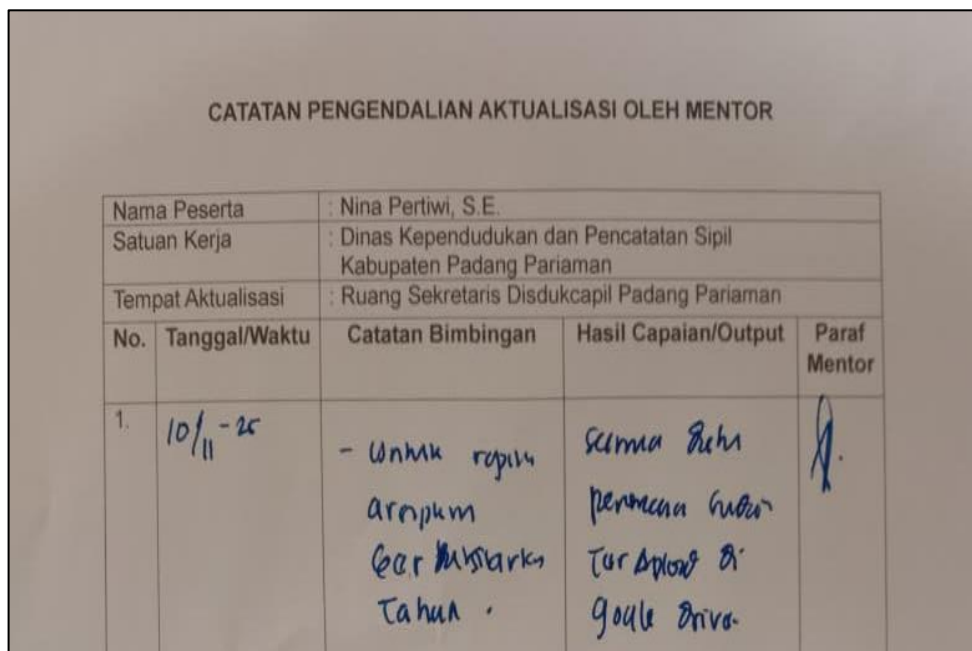 CATATAN PENGENDALIAN AKTUALISASI OLEH MENTOR
Nama Peserta : Nina Pertiwi, S.E.
Satuan Kerja : Dinas Kependudukan dan Pencatatan Sipil
Kabupaten Padang Pariaman
Tempat Aktualisasi : Ruang Sekretaris Disdukcapil Padang Pariaman
No. Tanggal/Waktu Catatan Bimbingan Hasil Capaian/Output Paraf
Mentor
1. 10/11-25
- Untuk semua
di
Tahun . google drive.